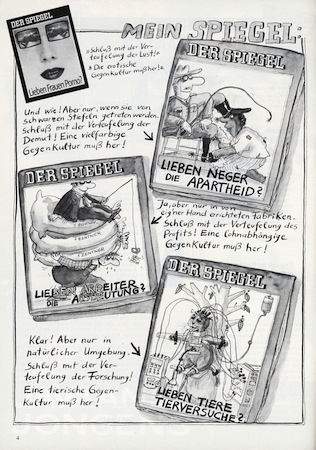 MEIN SPIEGEL:
DER SPIEGEL
Lieben Frauen Porno?
„Schluß mit der Ver-
teufelung der Lust!"
„Die erotische
Gegenkultur muß her!"
Und wie! Aber nur, wenn sie von
schwarzen Stiefeln getreten werden.
Schluß mit der Verteufelung der
Demut! Eine vielfarbige
Gegenkultur muß her!
DER SPIEGEL
LIEBEN NEGER
DIE APARTHEID?
DER SPIEGEL
1 ZENTNER
1 ZENTNER
LIEBEN ARBEITER
DIE AUSBEUTUNG?
Ja, aber nur in von
eig'ner Hand errichteten Fabriken.
Schluß mit der Verteufelung des
Profits! Eine lohnabhängige
Gegenkultur muß her!
DER SPIEGEL
LIEBEN TIERE
TIERVERSUCHE?
Klar! Aber nur in
natürlicher Umgebung.
Schluß mit der Ver-
teufelung der Forschung!
Eine tierische Gegen-
Kultur muß her!
4